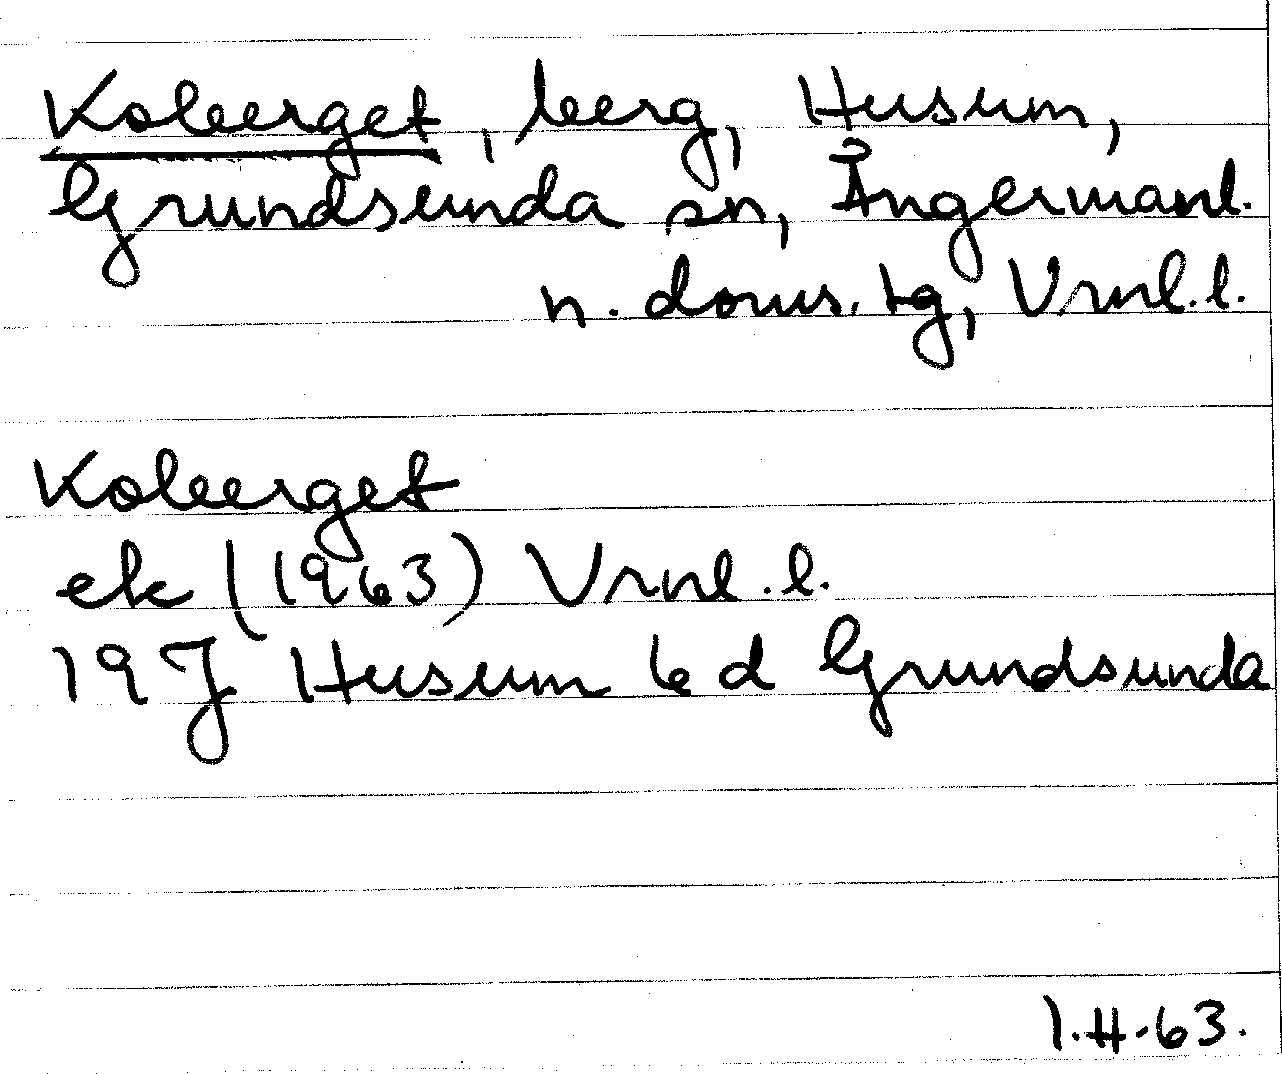 Koberget, berg, Husum,
Grundsunda sn, Ångermanl.
n. doms. tg, Vrnl. l.
Koberget
ek (1963) Vrnl. l.
19 J Husum 6 d Grundsunda
1.H.63.